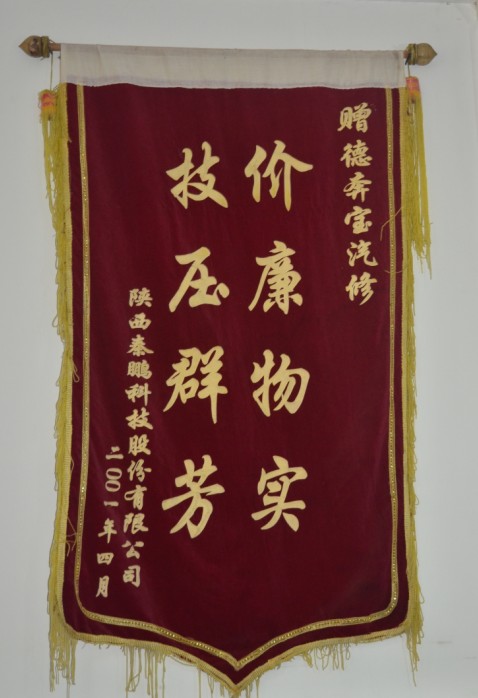 赠德奔宝汽修
价廉物实
技压群芳
陕西秦鹏科技股份有限公司
二00一年四月